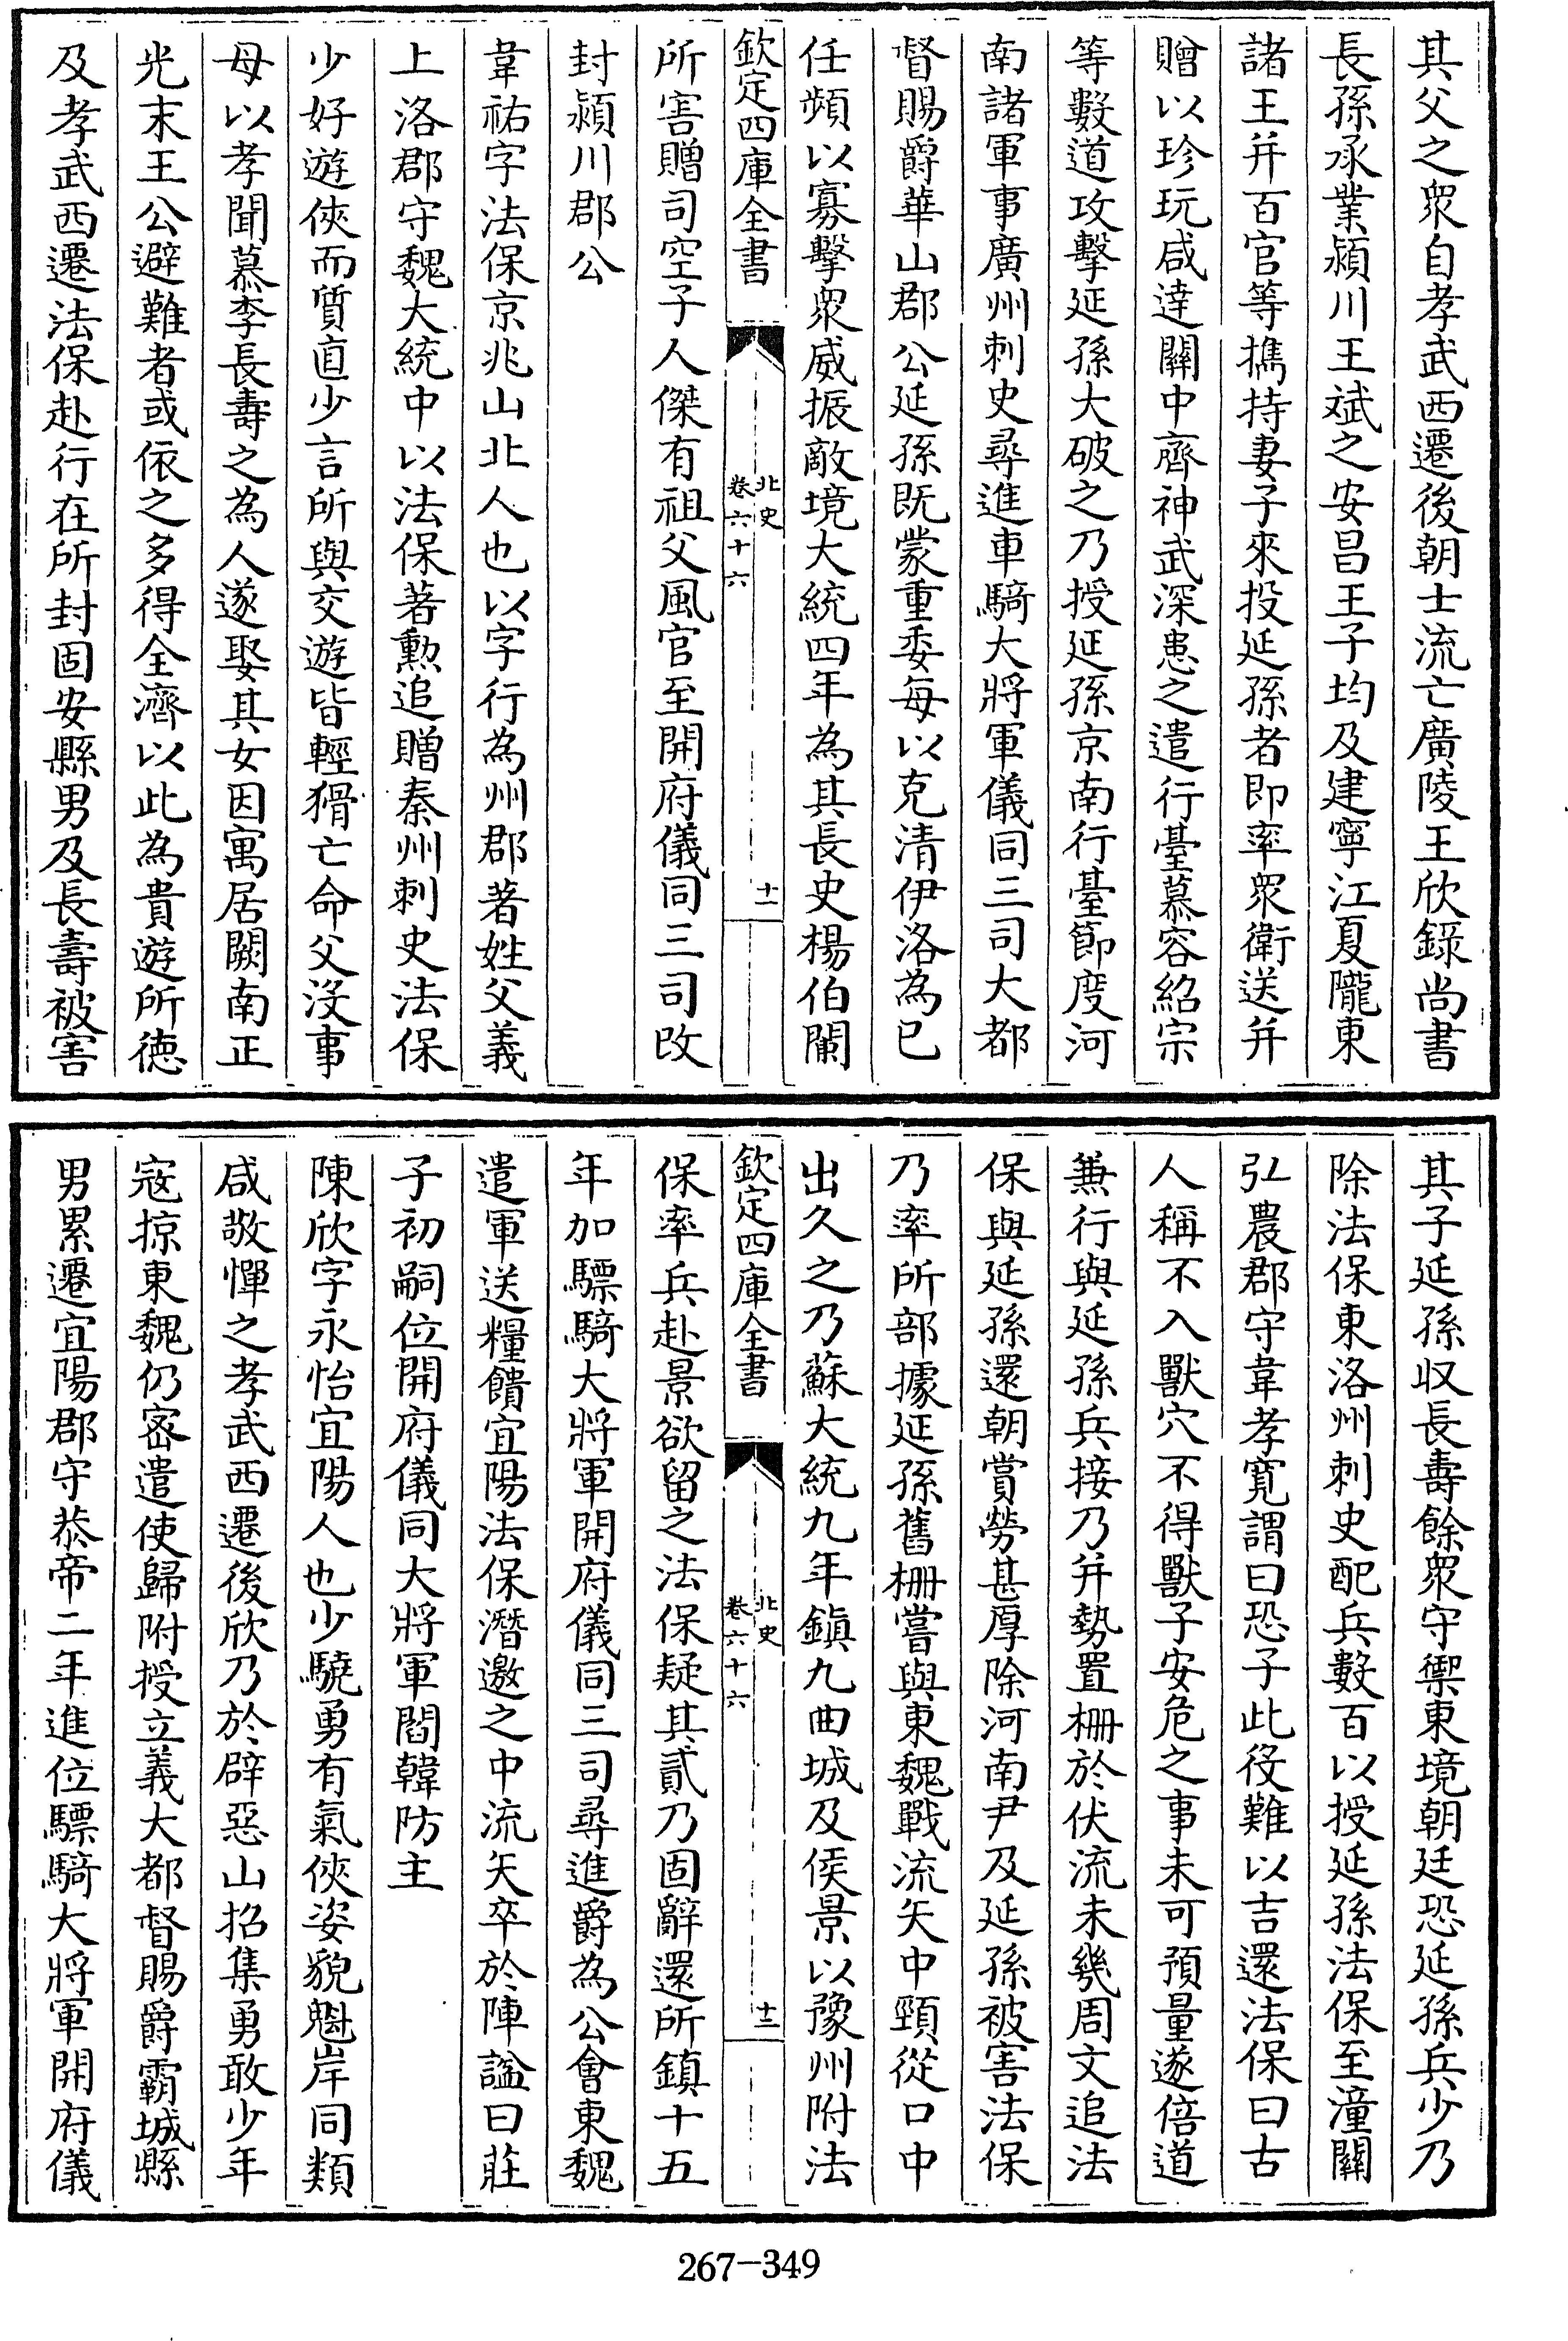 其父之衆自孝武西遷後朝士流亡廣陵王欣錄尚書
長孫承業潁川王斌之安昌王子均及建寧江夏隴東
諸王并百官等擕持妻子來投延孫者即率衆衛送并
贈以珍玩咸達關中齊神武深患之遣行臺慕容紹宗
等數道攻擊延孫大破之乃授延孫京南行臺節度河
南諸軍事廣州刺史尋進車騎大將軍儀同三司大都
督賜爵華山郡公延孫既蒙重委每以克清伊洛為已
任頻以寡擊衆威振敵境大統四年為其長史楊伯闌
欽定四庫全書
北史
卷六十六
十一
所害贈司空子人傑有祖父風官至開府儀同三司改
封潁川郡公
韋祐字法保京兆山北人也以字行為州郡著姓父義
上洛郡守魏大統中以法保著勲追贈秦州刺史法保
少好遊俠而質直少言所與交遊皆輕猾亡命父沒事
母以孝聞慕李長壽之為人遂娶其女因寓居闕南正
光末王公避難者或依之多得全濟以此為貴遊所德
及孝武西遷法保赴行在所封固安縣男及長壽被害
其子延孫収長壽餘衆守禦東境朝廷恐延孫兵少乃
除法保東洛州刺史配兵數百以授延孫法保至潼關
弘農郡守韋孝寬謂曰恐子此役難以吉還法保曰古
人稱不入獸穴不得獸子安危之事未可預量遂倍道
兼行與延孫兵接乃并勢置柵於伏流未幾周文追法
保與延孫還朝賞勞甚厚除河南尹及延孫被害法保
乃率所部據延孫舊柵嘗與東魏戰流矢中頸從口中
出久之乃蘇大統九年鎮九曲城及侯景以豫州附法
欽定四庫全書
北史
卷六十六
十二
保率兵赴景欲留之法保疑其貳乃固辭還所鎮十五
年加驃騎大將軍開府儀同三司尋進爵為公會東魏
遣軍送糧饋宜陽法保潛邀之中流矢卒於陣諡曰莊
子初嗣位開府儀同大將軍閻韓防主
陳欣字永怡宜陽人也少驍勇有氣俠姿貌魁岸同類
咸敬憚之孝武西遷後欣乃於辟惡山招集勇敢少年
寇掠東魏仍密遣使歸附授立義大都督賜爵霸城縣
男累遷宜陽郡守恭帝二年進位驃騎大將軍開府儀
267-349